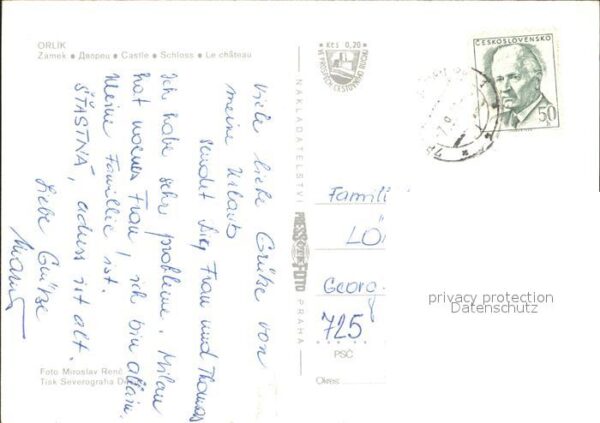 ORLÍK
Zámek • Дворец • Castle • Schloss • Le château
Viele liebe Grüße von
meine Urlaub
sendet Frau und Thomas
Ich habe sehr probleme. Milan
hat Frau! ich bin allein.
Meine Famillie ist.
ŠŤASTNÁ, adress ist alt.
Liebe Grüße
Foto Miroslav René
Tisk Severografia D
Kčs 0,20
NAKLADATELSTVÍ
PRESSFOTO
PRAHA
ČESKOSLOVENSKO
50
Famili
LÖ
Georg
725
PSČ
Okres
privacy protection
Datenschutz